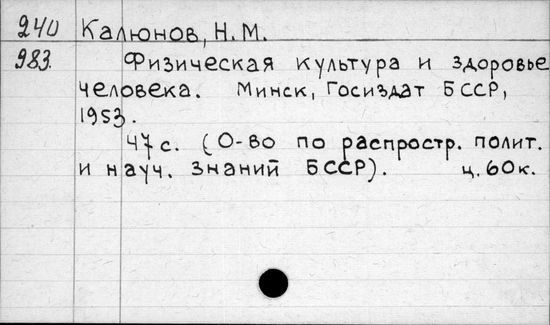 240 Калюнов, Н.М.
983. Физическая культура и здоровье
человека. Минск, Госиздат БССР,
1953.
47 с. (О-во по распростр. полит.
и науч. знаний БССР). ц. 60 к.